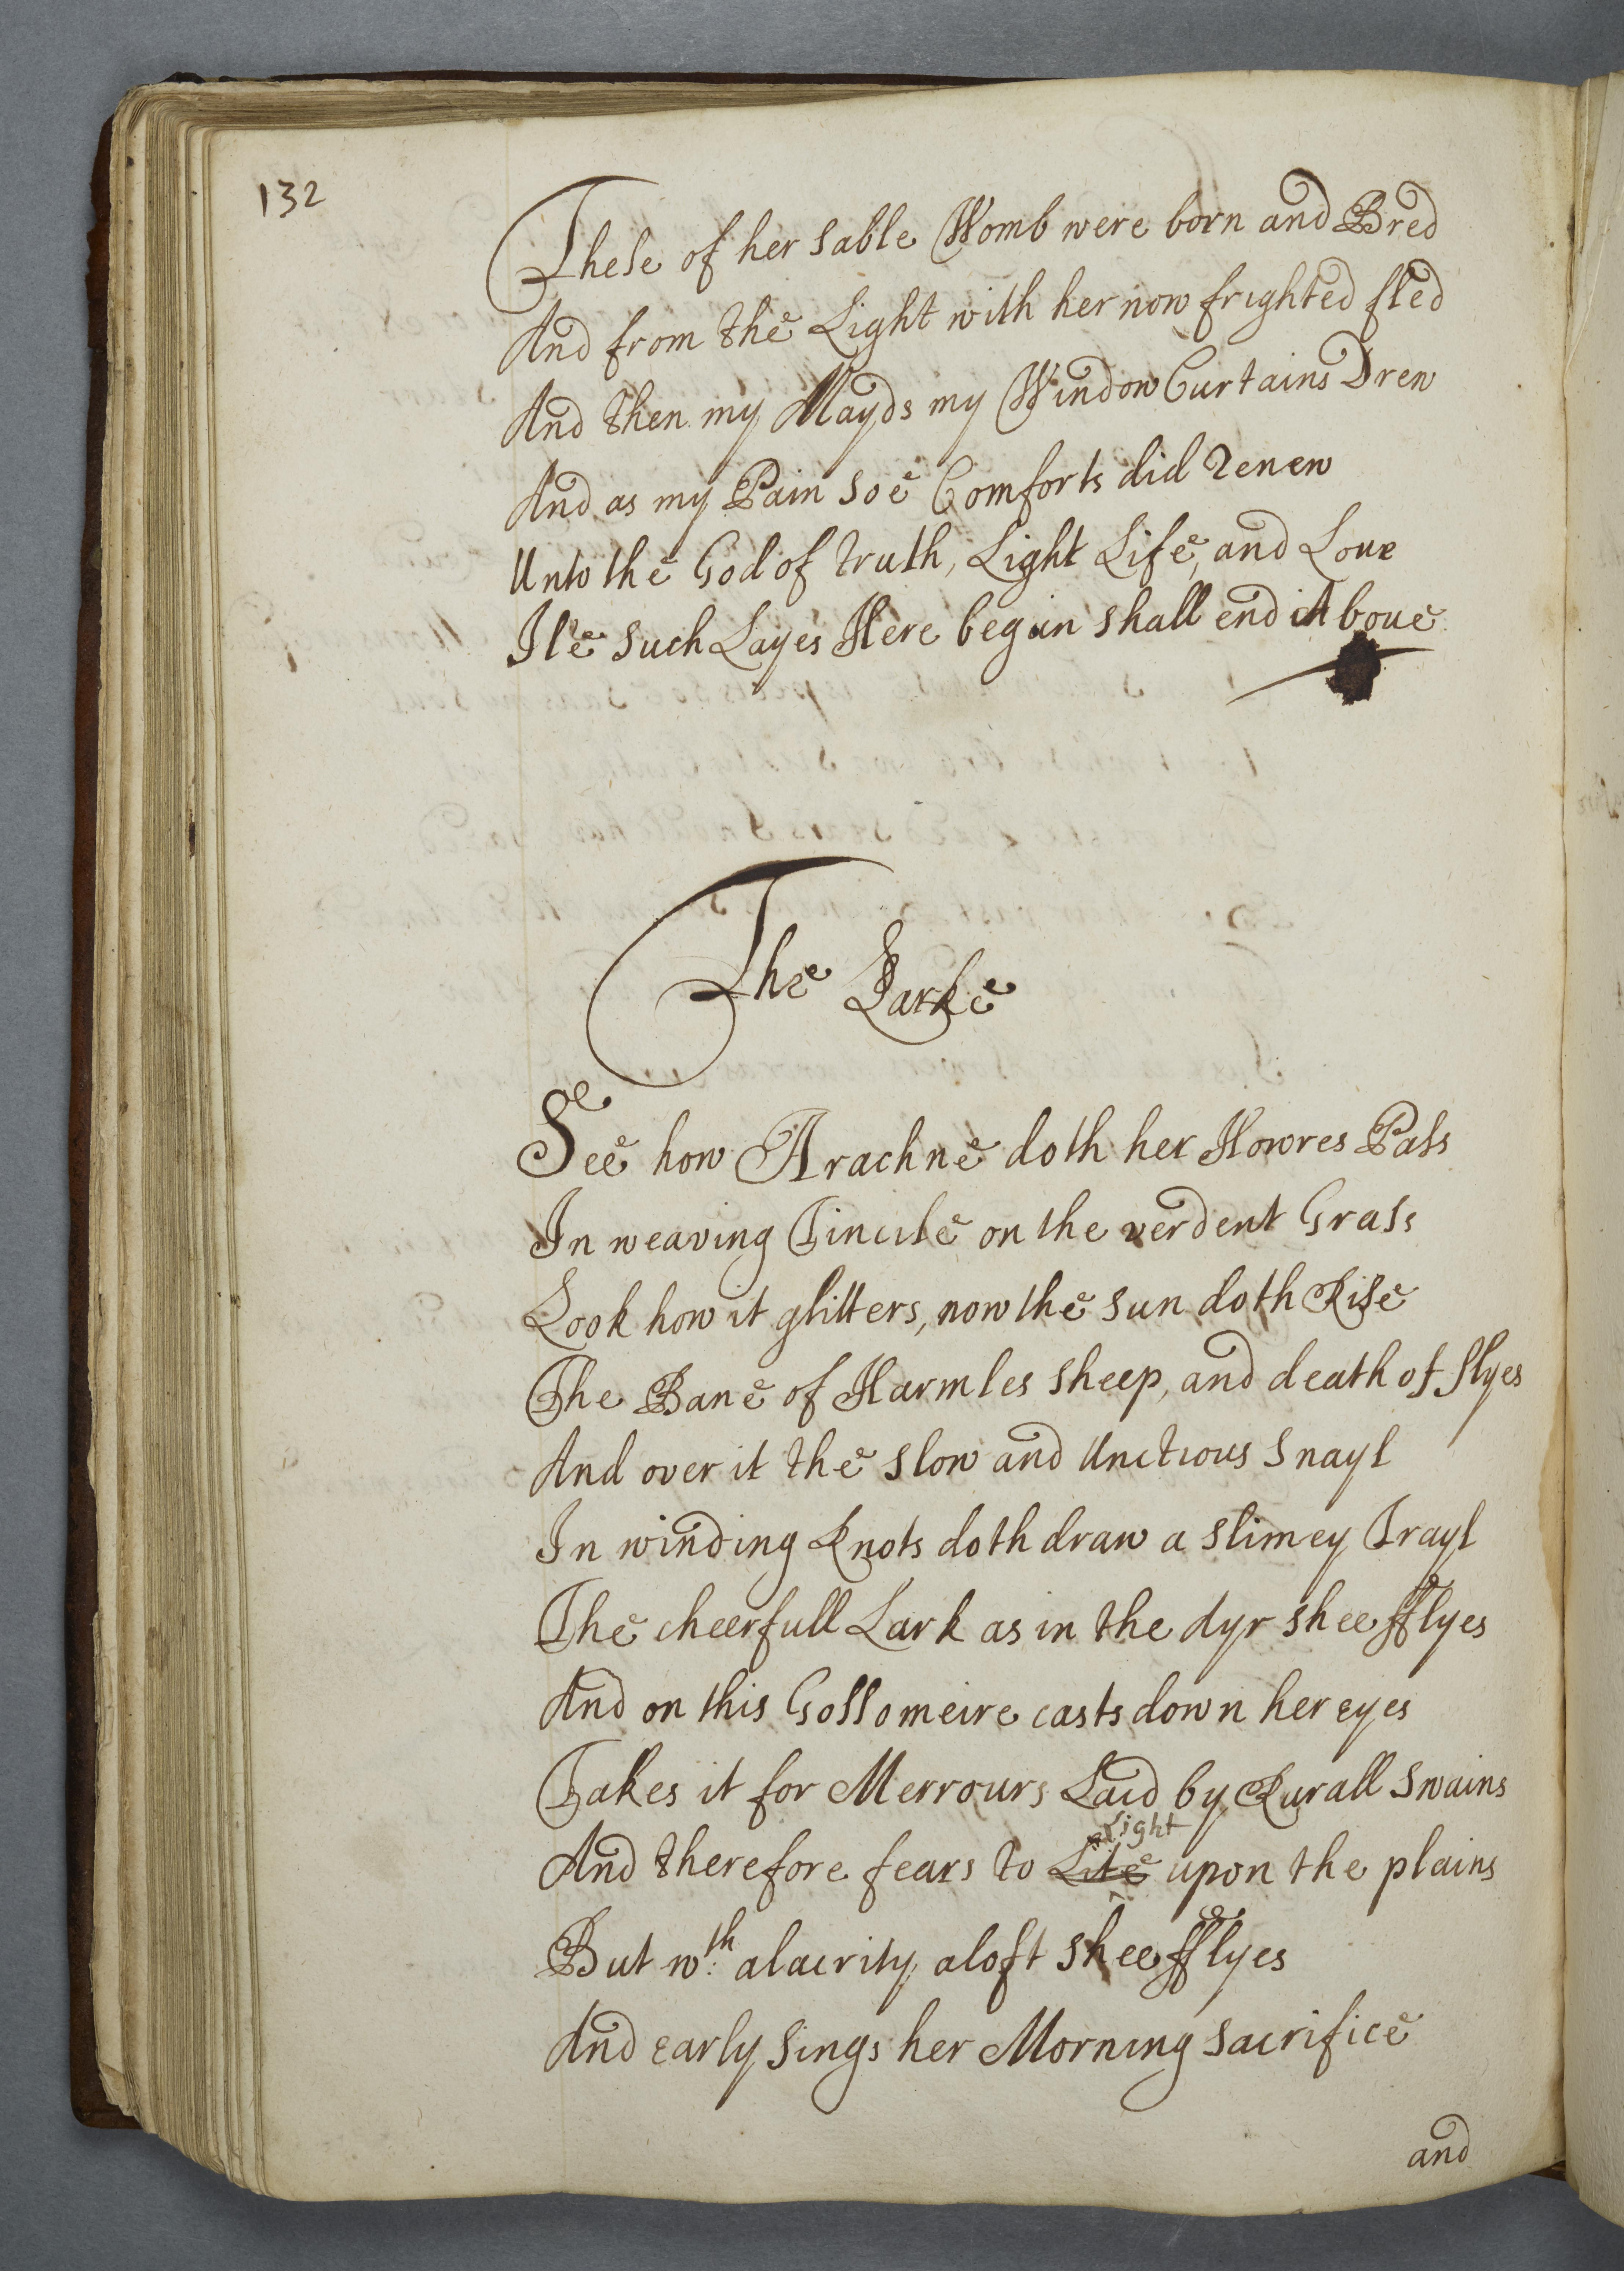 132
These of her sable Womb were born and Bred
And from the Light with her now frighted fled
And then my Mayds my Window Curtains Drew
And as my Pain soe Comforts did renew
Unto the God of truth, Light Life, and Loue
Ile such Layes Here begin shall end Aboue
The Larke
See how Arachne doth her Howres Pass
In weaving Tincile on the verdent Grass
Look how it glitters, now the sun doth Rise
The Bane of Harmles sheep, and death of flyes
And over it the slow and Unctious Snayl
In winding Knots doth draw a slimey Trayl
The cheerfull Lark as in the dyr shee fflyes
And on this Gossomeire casts down her eyes
Takes it for Merrours Laid by Rurall Swains
Light
And therefore fears to Lite upon the plains
But wth: alacrity aloft shee fflyes
And early sings her Morning sacrifice
and